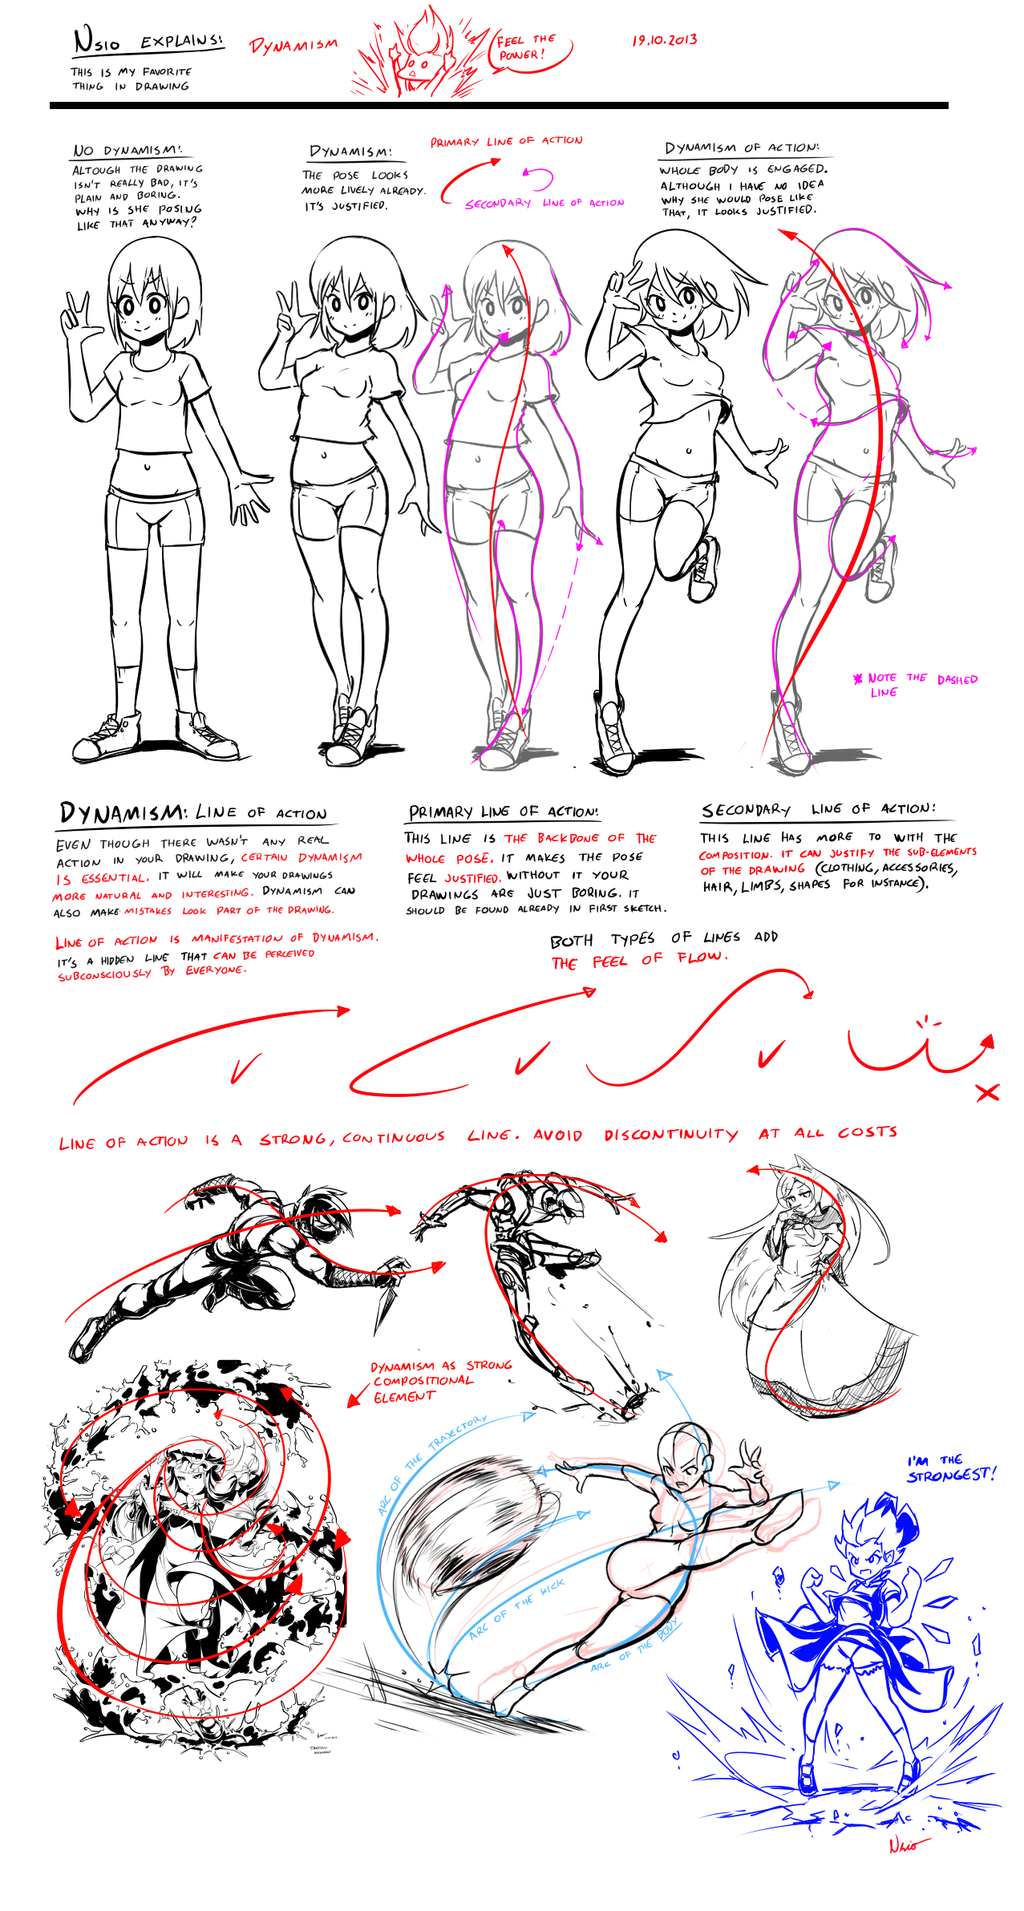 NSIO EXPLAINS: DYNAMISM
FEEL THE
POWER!
19.10.2013
THIS IS MY FAVORITE
THING IN DRAWING
NO DYNAMISM:
ALTOUGH THE DRAWING
ISN'T REALLY BAD, IT'S
PLAIN AND BORING.
WHY IS SHE POSING
LIKE THAT ANYWAY?
DYNAMISM:
THE POSE LOOKS
MORE LIVELY ALREADY.
IT'S JUSTIFIED.
PRIMARY LINE OF ACTION
SECONDARY LINE OF ACTION
DYNAMISM OF ACTION:
WHOLE BODY IS ENGAGED.
ALTHOUGH I HAVE NO IDEA
WHY SHE WOULD POSE LIKE
THAT, IT LOOKS JUSTIFIED.
* NOTE THE DASHED
LINE
DYNAMISM: LINE OF ACTION
EVEN THOUGH THERE WASN'T ANY REAL
ACTION IN YOUR DRAWING, CERTAIN DYNAMISM
IS ESSENTIAL. IT WILL MAKE YOUR DRAWINGS
MORE NATURAL AND INTERESTING. DYNAMISM CAN
ALSO MAKE MISTAKES LOOK PART OF THE DRAWING.
LINE OF ACTION IS MANIFESTATION OF DYNAMISM.
IT'S A HIDDEN LINE THAT CAN BE PERCEIVED
SUBCONSCIOUSLY BY EVERYONE.
PRIMARY LINE OF ACTION:
THIS LINE IS THE BACKBONE OF THE
WHOLE POSE. IT MAKES THE POSE
FEEL JUSTIFIED. WITHOUT IT YOUR
DRAWINGS ARE JUST BORING. IT
SHOULD BE FOUND ALREADY IN FIRST SKETCH.
SECONDARY LINE OF ACTION:
THIS LINE HAS MORE TO WITH THE
COMPOSITION. IT CAN JUSTIFY THE SUB-ELEMENTS
OF THE DRAWING (CLOTHING, ACCESSORIES,
HAIR, LIMBS, SHAPES FOR INSTANCE).
BOTH TYPES OF LINES ADD
THE FEEL OF FLOW.
LINE OF ACTION IS A STRONG, CONTINUOUS LINE. AVOID DISCONTINUITY AT ALL COSTS
DYNAMISM AS STRONG
COMPOSITIONAL
ELEMENT
ARC OF THE TRAJECTORY
ARC OF THE KICK
ARC OF THE BODY
I'M THE
STRONGEST!
Nsio